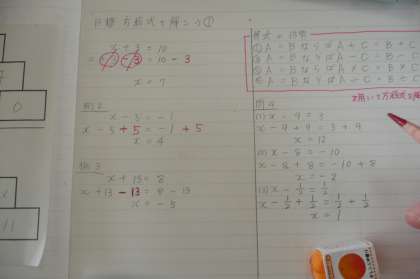 目標 方程式を解こう①
x + 3 = 10
= x + 3 - 3 = 10 - 3
x = 7
例2
x - 5 = -1
x - 5 + 5 = -1 + 5
x = 4
例3
x + 13 = 8
x + 13 - 13 = 8 - 13
x = -5
等式の性質
① A = B ならば A + C = B + C
② A = B ならば A - C = B - C
③ A = B ならば A × C = B × C
④ A = B ならば A ÷ C = B ÷ C
を用いて方程式を解
問4
(1) x - 9 = 3
x - 9 + 9 = 3 + 9
x = 12
(2) x - 8 = -10
x - 8 + 8 = -10 + 8
x = -2
(3) x - 1/2 = 1/2
x - 1/2 + 1/2 = 1/2 + 1/2
x = 1